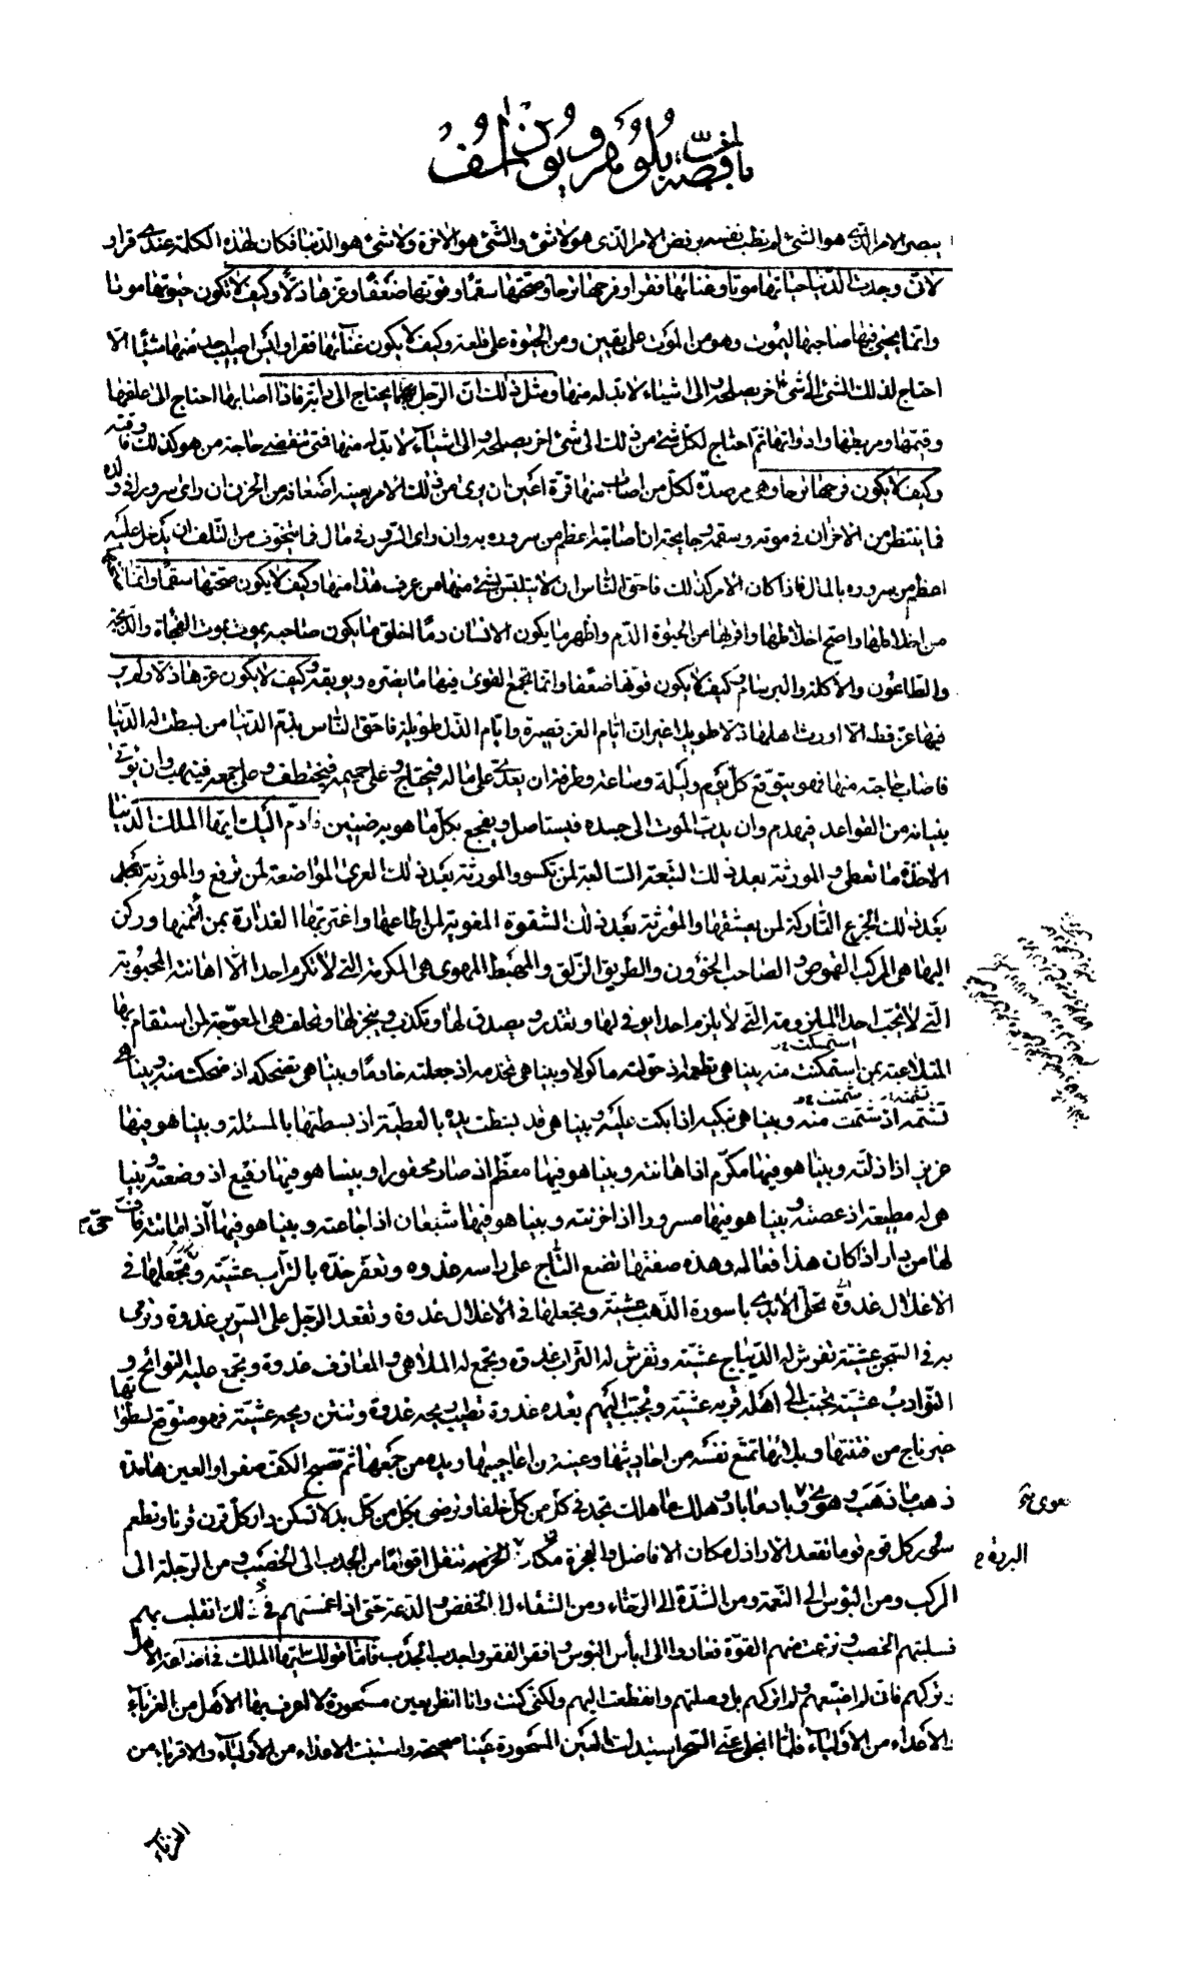 باقى قصة بلوهر ويوذاسف
يبصر الامر الذى هو الشئ لم تطب نفسه برفض الامر الذى هو لا شئ والشئ هو الاخرة ولا شئ هو الدنيا فكان لهذه الكلمة عندى قرار
لانى وجدت الدنيا حياتها موتا وغناءها فقرا وفرحها ترحا وصحتها سقما وقوتها ضعفا وعزها ذلا وكيف لا تكون حيوتها موتا
وانما يحيى فيها صاحبها ليموت وهو من الموت على يقين ومن الحيوة على قلعة وكيف لا يكون غناؤها فقرا وليس اصيب احد منها شيئا الا
احتاج لذلك الشئ الى شئ اخر يصلحه والى اشياء لا بد له منها ومثل ذلك ان الرجل ربما يحتاج الى دابة فاذا اصابها احتاج الى علفها
وقيمها ومربطها وادواتها ثم احتاج لكل شئ من ذلك الى شئ اخر يصلحه والى اشياء لا بد له منها فمتى تنقضى حاجة من هو كذلك وفاقته
وكيف لا يكون فرحها ترحا وهى مرصدة لكل من اصاب منها قرة اعين ان يرى من ذلك الامر بعينه اضعافه من الحزن ان راى سرورا فى ولده
فما ينتظر من الاحزان فى موته وسقمه وجايحة ان اصابته اعظم من سروره به وان راى السرور فى مال فما يتخوف من التلف ان يدخل عليه
اعظم من سروره بالمال فاذا كان الامر كذلك فاحق الناس ان لا يتلبس بشئ منها من عرف هذا منها وكيف لا يكون صحتها سقما وانما صحتها
من اخلاطها واصح اخلاطها واقربها من الحيوة الدم واظهر ما يكون الانسان دما اخلق ما يكون صاحبه بموت الفجأة والذبحة
والطاعون والاكلة والبرسام وكيف لا يكون قوتها ضعفا وانما تجمع القوى فيها ما يضره ويوبقه وكيف لا يكون عزها ذلا ولم ير
فيها عز قط الا اورث اهلها ذلا طويلا غير ان ايام العز قصيرة وايام الذل طويلة فاحق الناس بذم الدنيا من بسطت له الدنيا
فاصاب حاجته منها فهو يتوقع كل يوم وليلة وساعة وطرفة ان يعدى على ماله فيحتاج وعلى حميمه فيختطف وعلى جمعه فينهب وان يؤتى
بنيانه من القواعد فيهدم وان يدب الموت الى جسده فيستاصل ويفجع بكل ما هو به ضنين فاذم اليك ايها الملك الدنيا
الاخذة ما تعطى والمورثة بعد ذلك التبعة السالبة لمن تكسو والمورثة بعد ذلك العرى المواضعة لمن ترفع والمورثة
بعد ذلك الجزع التاركة لمن يعشقها والمورثة بعد ذلك الشقوة المغوية لمن اطاعها واغتر بها الغدارة بمن ائتمنها وركن
اليها هى المركب القموص والصاحب الخؤون والطريق الزلق والمهبط المهوى هى المكرمة التى لا تكرم احدا الا اهانته المحبوبة
التى لا تحب احدا الملزومة التى لا يلزم احدا يوفى لها وتغدر ويصدق لها وتكذب وينجز لها وتخلف هى المعوجة لمن استقام بها
استمسكت
المتلاعبة بمن استمكنت منه بينا هى تطعمه اذ حولته ماكولا وبينا هى تخدمه اذ جعلته خادما وبينا هى تضحكه اذ ضحكت منه وبينا هى
تشمته شمتت
تشتمه اذ شتمت منه وبينا هى تبكيه اذا بكت عليه وبينا هى قد بسطت يده بالعطية اذ بسطتها بالمسئلة وبينا هو فيها
عزيز اذا ذلته وبينا هو فيها مكرم اذا اهانته وبينا هو فيها معظم اذ صار محقورا وبينا هو فيها رفيع اذ وضعته وبينا
هى له مطيعة اذ عصته وبينا هو فيها مسرور اذا احزنته وبينا هو فيها شبعان اذ اجاعته وبينا هو فيها اذ اماتته فاف
لها من دار اذا كان هذا فعالها وهذه صفتها تضع التاج على راسه غدوة وتعفر خده بالتراب عشية وتجعلها فى
الاغلال غدوة تحلى الايدى باسورة الذهب عشية وتجعلها فى الاغلال غدوة وتقعد الرجل على السرير غدوة وترمى
به فى السجن عشية تفرش له الديباج عشية وتفرش له التراب غدوة وتجمع له الملاهى والمعازف غدوة وتجمع عليه النوائح و
النوادب عشية تحبب الى اهله قربه عشية وتحبب اليهم بعده غدوة تطيب ريحه غدوة وتنتن ريحه عشية فهو متوقع لسطواتها
غير ناج من فتنتها وبلائها تمتع نفسه من احاديثها وعينه من اعاجيبها ويده من جمعها ثم تصبح الكف صفرا والعين هامدة
ذهب ما ذهب وهوى وباد ما باد وهلك ما هلك تجد فى كل من كل خلفا وترضى بكل من كل بدلا تسكن دار كل قرن قرنا وتطعم
سؤر كل قوم قوما تقعد الاراذل مكان الافاضل والعجزة مكان الحزمة تنقل اقواما من الجدب الى الخصب ومن الرجلة الى
المركب ومن البؤس الى النعمة ومن الشدة الى الرخاء ومن الشقاء الى الخفض والدعة حتى اذا غمستهم فى ذلك انقلبت بهم
فسلبتهم الخصب ونزعت منهم القوة فعادوا الى ابأس البؤس وافقر الفقر واجدب الجدب فاما قولك ايها الملك فى اضاعة الاهل
وتركهم فانى لم اضيعهم ولم اتركهم بل وصلتهم وانقطعت اليهم ولكنى كنت وانا انظر بعين مسحورة لا اعرف بها الاهل من الغرباء
والاعداء من الاولياء فلما انجلى عنى السحر استبدلت العين المسحورة عينا صحيحة واستبنت الاعداء من الاولياء والاقرباء من
الغرباء